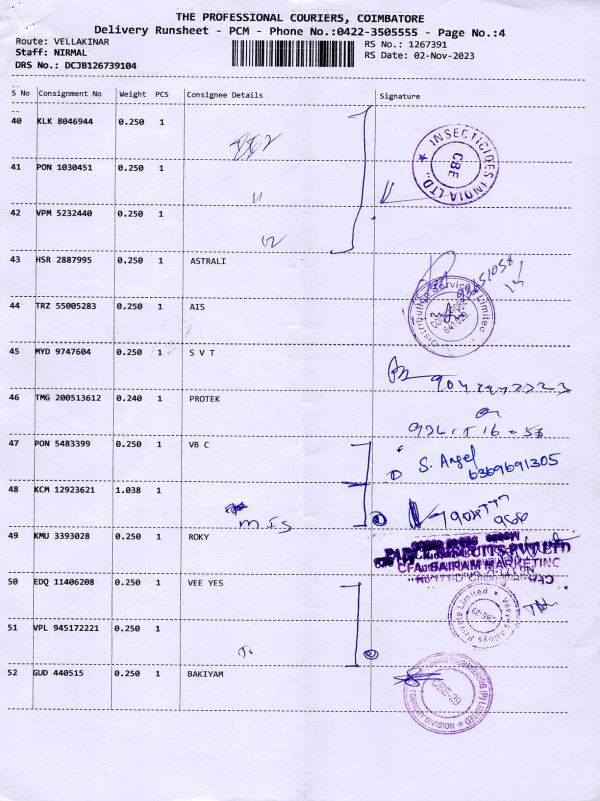 THE PROFESSIONAL COURIERS, COIMBATORE
Delivery Runsheet - PCM - Phone No.:0422-3505555 - Page No.:4
Route: VELLAKINAR
RS No.: 1267391
Staff: NIRMAL
RS Date: 02-Nov-2023
DRS No.: DCJB126739104
S No Consignment No Weight PCS Consignee Details Signature
40 KLK 8046944 0.250 1
INSECTICIDES INDIA LTD., ★ CBE
41 PON 1030451 0.250 1
42 VPM 5232440 0.250 1
43 HSR 2887995 0.250 1 ASTRALI
44 TRZ 55005283 0.250 1 AIS
Distribution Services Limited
45 MYD 9747604 0.250 1 S V T
46 TMG 200513612 0.240 1 PROTEK
47 PON 5483399 0.250 1 VB C
S. Angel
6369691305
48 KCM 12923621 1.038 1
M I S
49 KMU 3393028 0.250 1 ROKY
PARLE BISCUITS PVT LTD
CFA. SAIRAM MARKETING
50 EDQ 11406208 0.250 1 VEE YES
Alloys Private Limited
51 VPL 945172221 0.250 1
52 GUD 440515 0.250 1 BAKIYAM
(P) LIMITED
CBE-29
FOUNDRY DIVISION